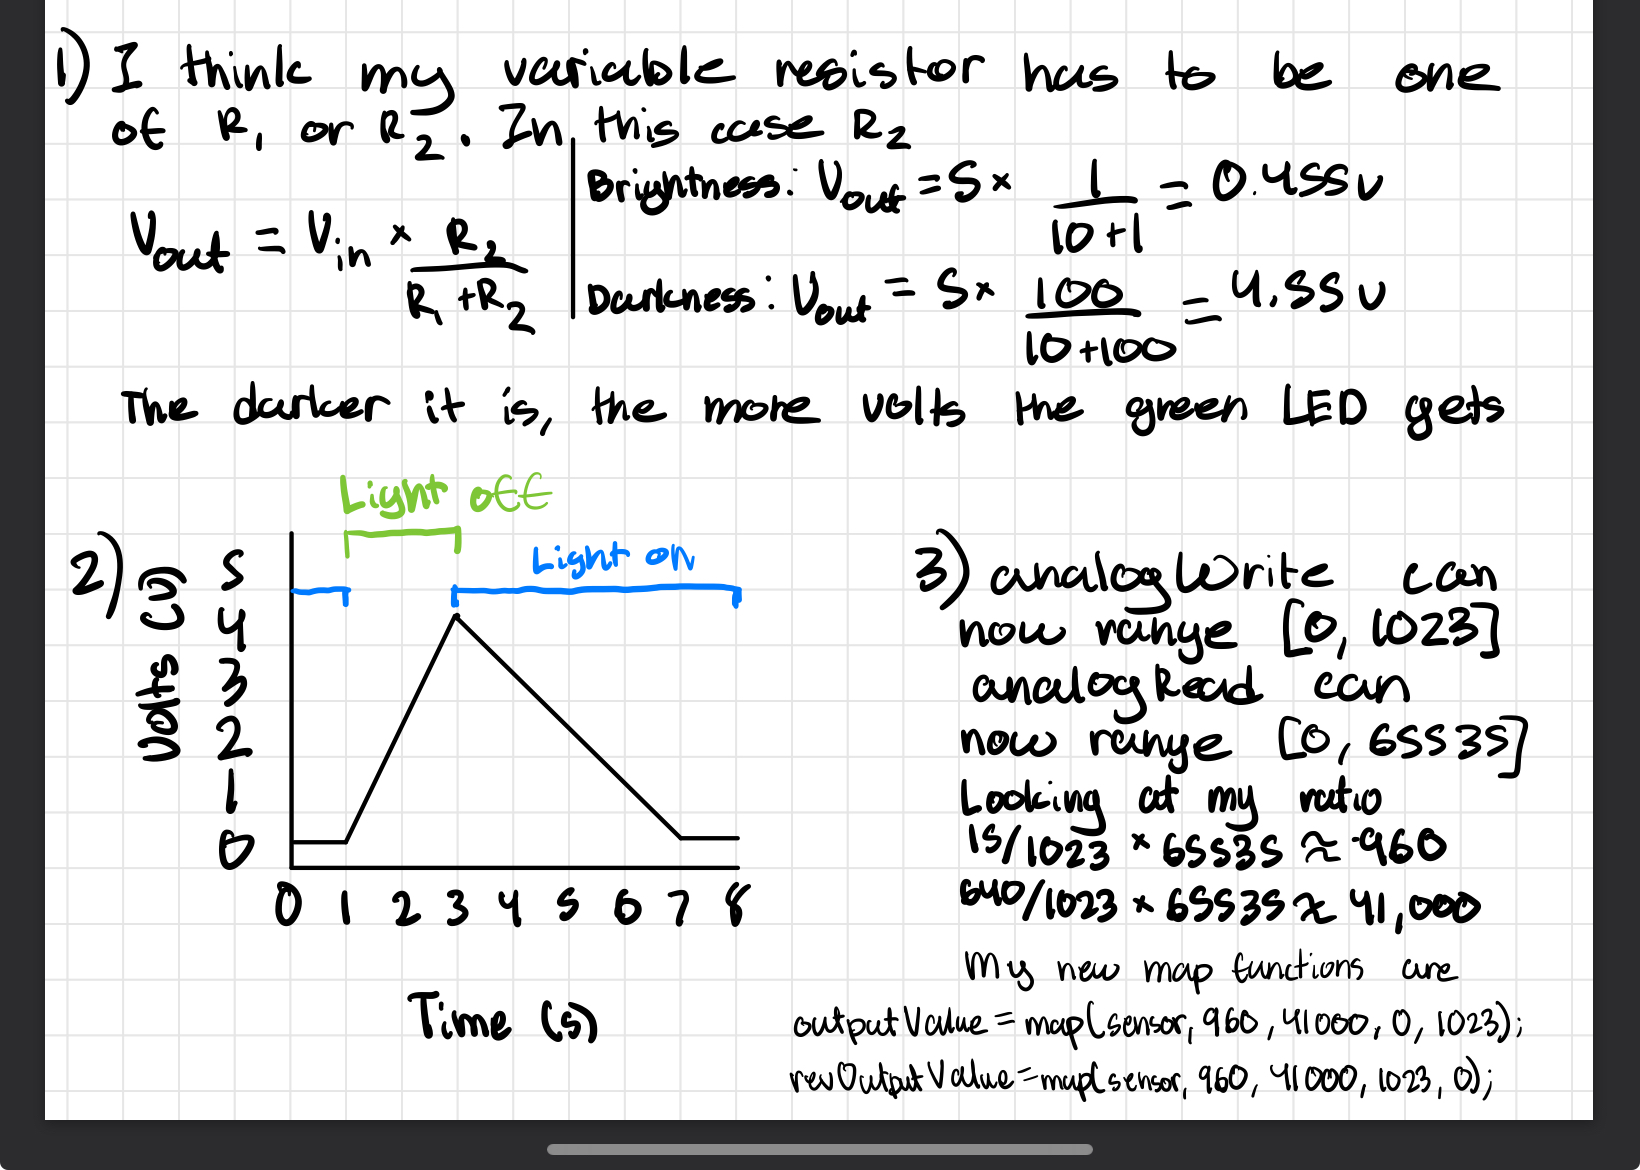 1) I think my variable resistor has to be one
of R1 or R2. In this case R2
Vout = Vin × R2/(R1+R2)
Brightness: Vout = 5 × 1/(10+1) = 0.455v
Darkness: Vout = 5 × 100/(10+100) = 4.55v
The darker it is, the more volts the green LED gets
2)
Light off
Light on
Volts (v)
5
4
3
2
1
0
0 1 2 3 4 5 6 7 8
Time (s)
3) analogWrite can
now range [0, 1023]
analogRead can
now range [0, 65535]
Looking at my ratio
15/1023 × 65535 ≈ 960
640/1023 × 65535 ≈ 41,000
My new map functions are
outputValue = map(sensor, 960, 41000, 0, 1023);
revOutputValue = map(sensor, 960, 41000, 1023, 0);